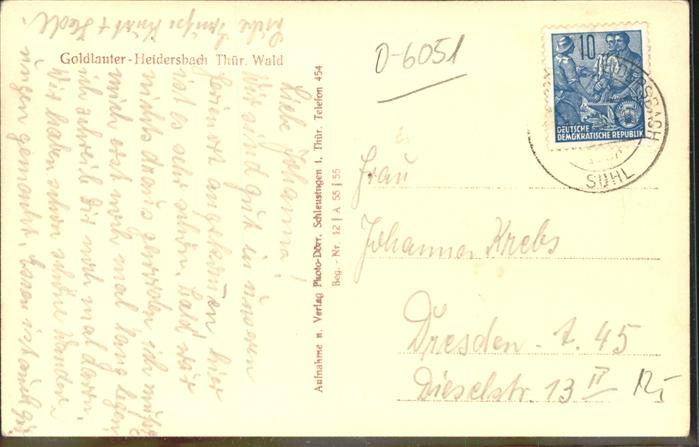 Goldlauter-Heidersbach Thür. Wald
Liebe Johanna!
Wir sind gut in unseren
Ferienort angekommen hier
ist es sehr schön. Bald wär
nichts draus geworden ich mußte
mich erst noch mal lang legen
ich schreib Dir noch mal davon.
Wir haben schon schöne Wander-
ungen gemacht. Essen ist auch
Kurt + Hedl.
Aufnahme u. Verlag Photo-Dörr, Schleusingen i. Thür. Telefon 454
Beg.-Nr. 12 | A 55 | 55
0-6051
10
DEUTSCHE
DEMOKRATISCHE REPUBLIK
SUHL
Frau
Johanna Krebs
Dresden-A. 45
Dieselstr. 13 II